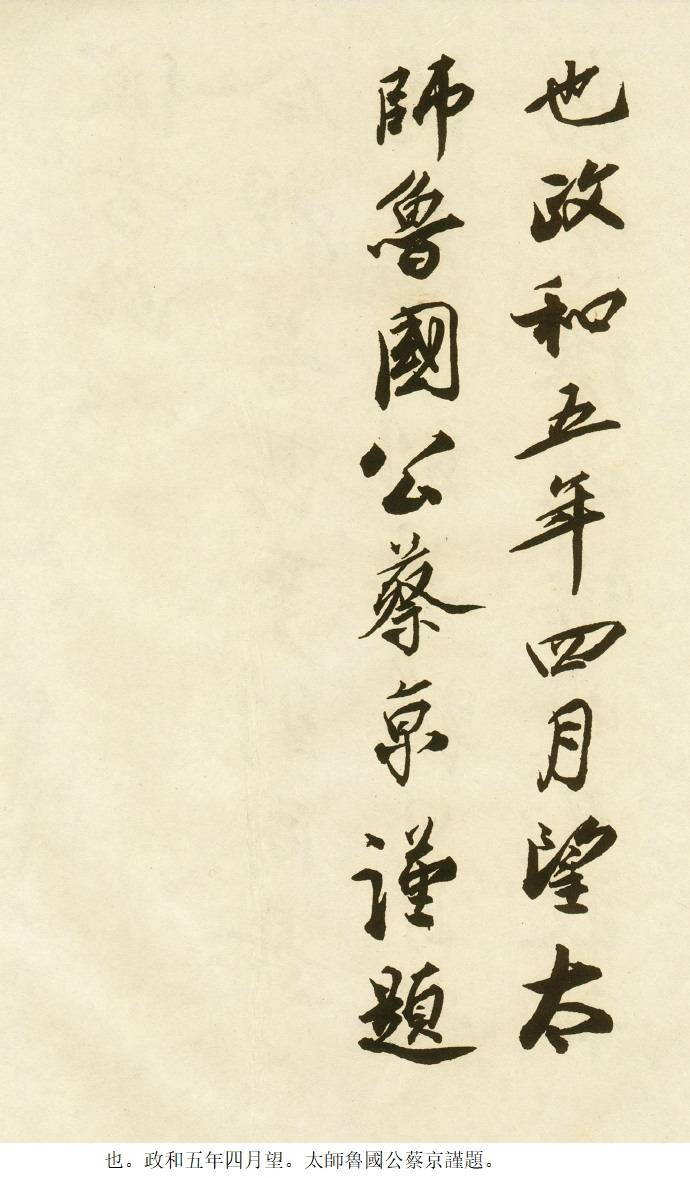 也政和五年四月望太
師魯國公蔡京謹題
也。政和五年四月望。太師魯國公蔡京謹題。